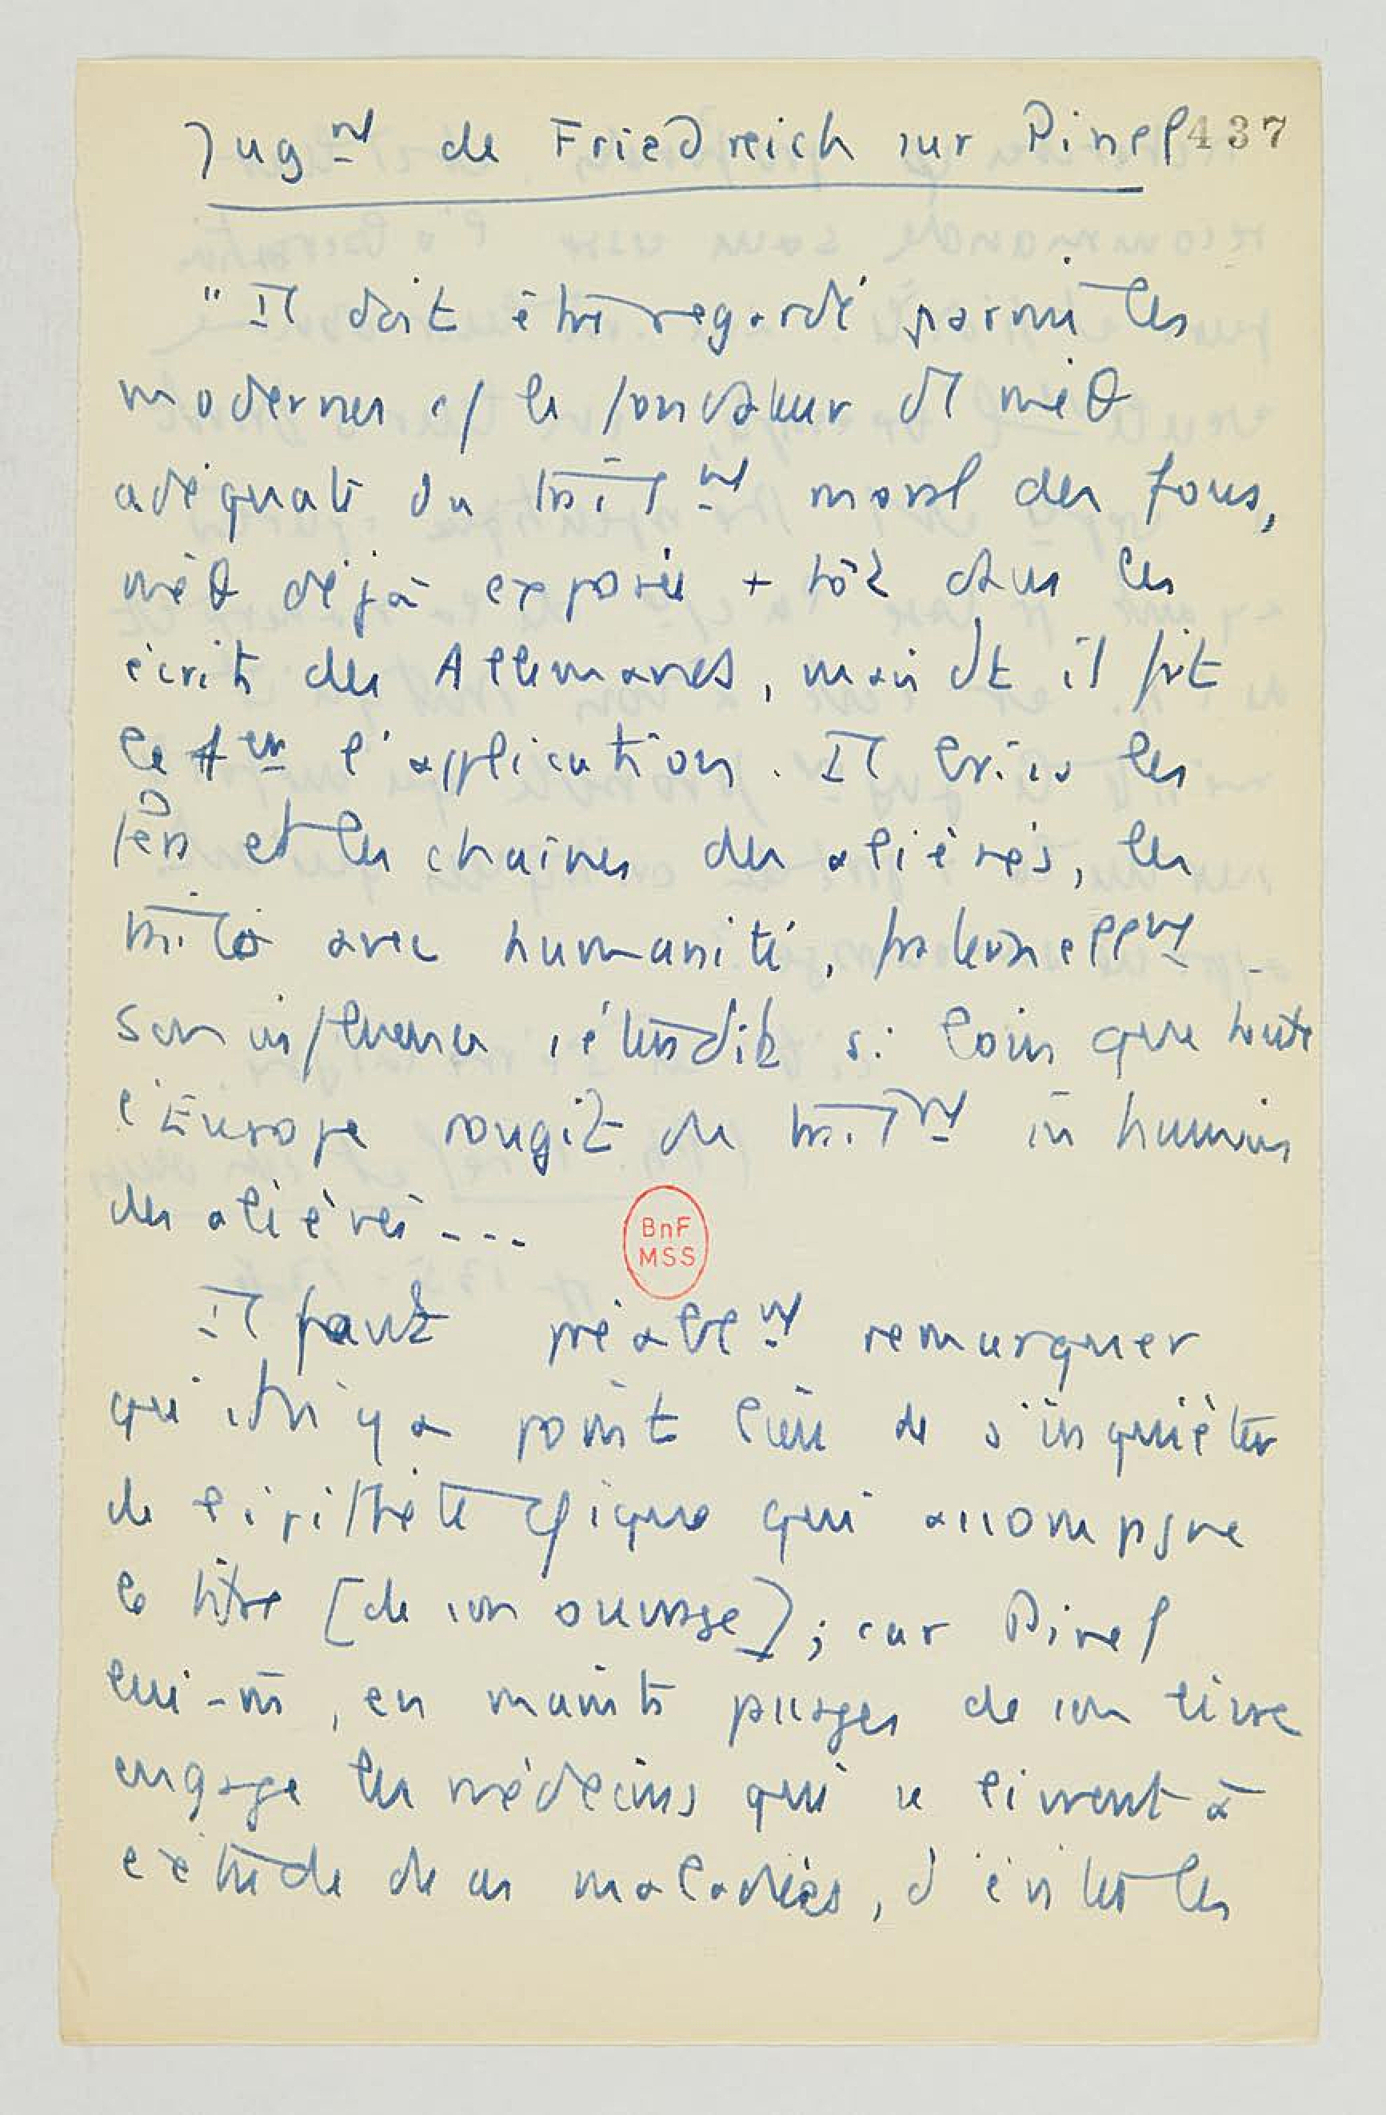 Jugnt de Friedreich sur Pinel 437
"Il doit être regardé parmi les
modernes c/ le fondateur dl méθ
adéquate du traitnt moral des fous,
méθ déjà exposée + tôt dans les
écrits des Allemands, mais dt il fit
le 1er l'application. Il brisa les
fers et les chaînes des aliénés, les
traita avec humanité, paternellnt
son influence s'étendit si loin que toute
l'Europe rougit du traitnt inhumain
des aliénés...
BnF
MSS
Il faut préalblnt remarquer
qu'il n'y a point lieu de s'inquiéter
de l'épithète φique qui accompagne
le titre [de son ouvrage]; car Pinel
lui-m̄, en maints passages de son livre
engage les médecins qui se livrent à
l'étude de ces maladies, d'éviter les